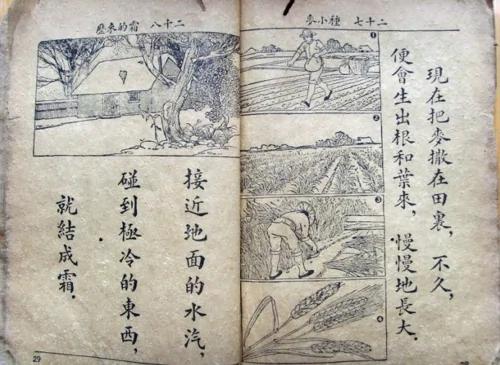 二十七　種小麥
現在把麥撒在田裏，不久，
便會生出根和葉來，慢慢地長大.
1
2
3
4
二十八　霜的來歷
接近地面的水汽，
碰到極冷的東西，
就結成霜.
29